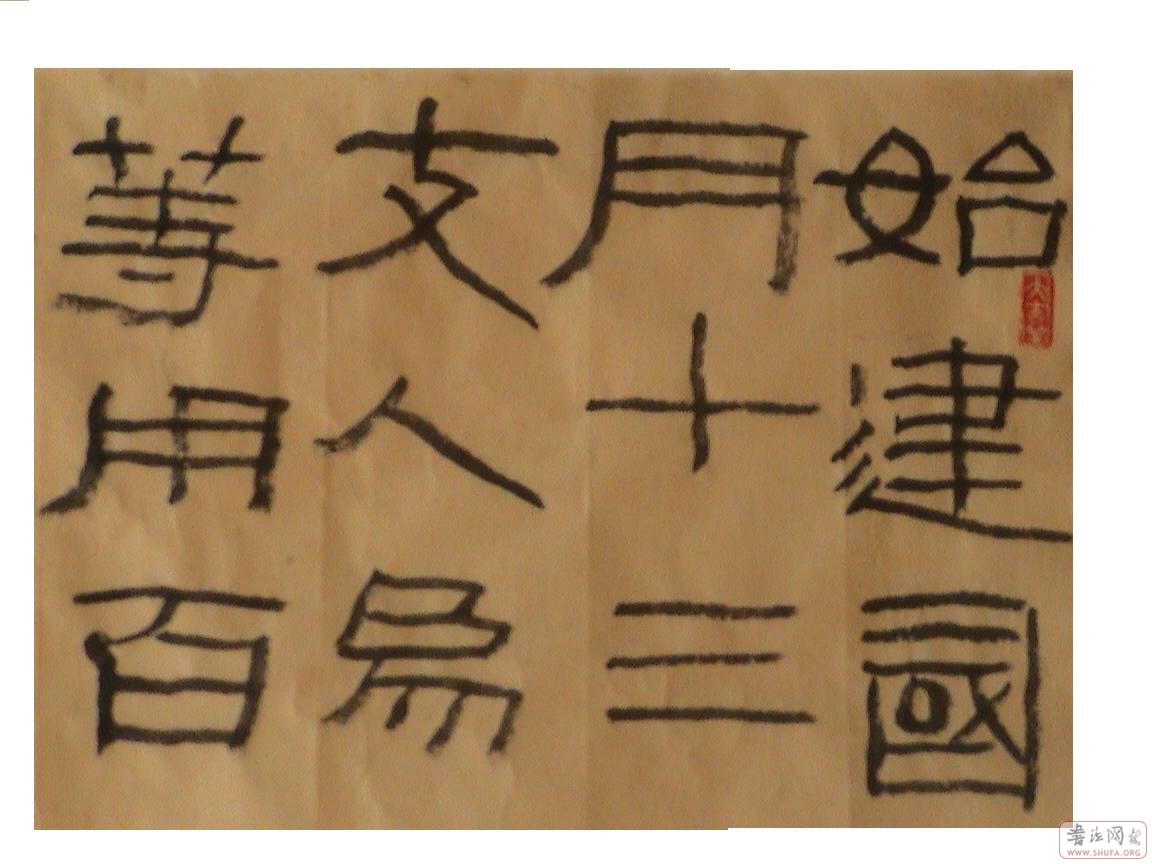 始建國
月十三
支人為
等用百
書法网
WWW.SHUFA.ORG